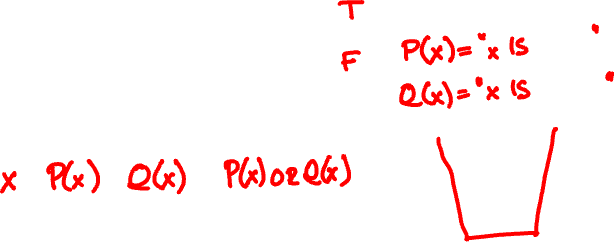 T
F P(x)= "x IS "
Q(x)= "x IS "
x P(x) Q(x) P(x) OR Q(x)